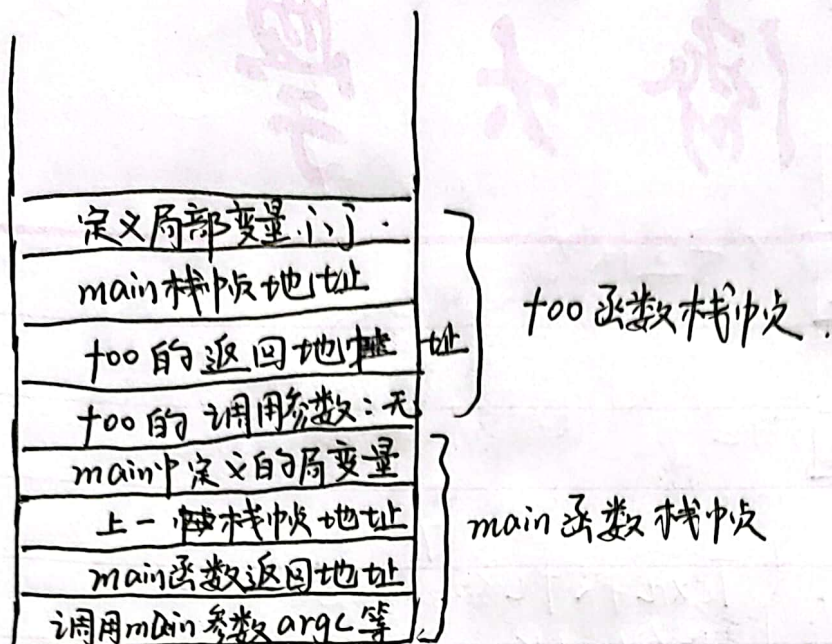 定义局部变量i,j
main栈帧地址
foo的返回地址
foo的调用参数:无
foo函数栈帧.
main中定义的局变量
上一栈帧地址
main函数返回地址
调用main参数argc等
main函数栈帧